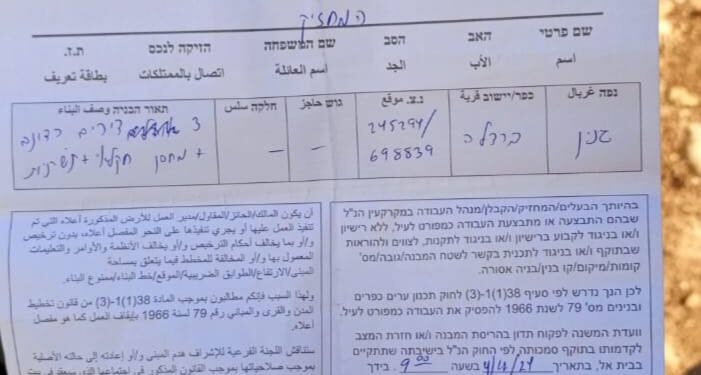 המחזיק
שם פרטי האב הסב שם המשפחה הזיקה לנכס ת.ז.
اسم الأب الجد اسم العائلة اتصال بالممتلكات بطاقة تعريف
נפה غربال כפר/יישוב قرية נ.צ. موقع גוש حاجز חלקה سلس תאור הבניה وصف البناء
ג'נין ברדלה 245294/ 698839 — — 3 דירים
+ מחסן חקלאי +
בהיותך הבעלים/המחזיק/הקבלן/מנהל העבודה במקרקעין הנ"ל
שבהם התבצעה או מתבצעת העבודה כמפורט לעיל, ללא רישיון
ו/או בניגוד לקבוע ברישיון ו/או בניגוד לתקנות, לצווים ולהוראות
שבתוקף ו/או בניגוד לתכנית בקשר לשטח המבנה/גובה/מס'
קומות/מיקום/קו בנין/בניה אסורה.
לכן הנך נדרש לפי סעיף 38(1)-(3) לחוק תכנון ערים כפרים
ובנינים מס' 79 לשנת 1966 להפסיק את העבודה כמפורט לעיל.
וועדת המשנה לפקוח תדון בהריסת המבנה ו/או חזרת המצב
לקדמותו בתוקף סמכותה לפי החוק הנ"ל בישיבתה שתתקיים
בבית אל, בתאריך 4/4/24 בשעה 9:00. בידך
أن يكون المالك/الحائز/المقاول/مدير العمل للأرض المذكورة أعلاه التي تم
تنفيذ العمل عليها أو يجري تنفيذها على النحو المفصل أعلاه، بدون ترخيص
و/أو بما يخالف أحكام الترخيص و/أو يخالف الأنظمة والأوامر والتعليمات
المعمول بها و/أو المخالفة للمخطط فيما يتعلق بمساحة
المبنى/الارتفاع/الطوابق الضريبية/الموقع/خط البناء/ممنوع البناء.
ولهذا السبب فإنكم مطالبون بموجب المادة 38(1)-(3) من قانون تخطيط
المدن والقرى والمباني رقم 79 لسنة 1966 بإيقاف العمل كما هو مفصل
أعلاه.
ستناقش اللجنة الفرعية للإشراف هدم المبنى و/أو إعادته إلى حالته الأصلية
بموجب صلاحياتها بموجب القانون المذكور في اجتماعها الذي سيعقد في بيت